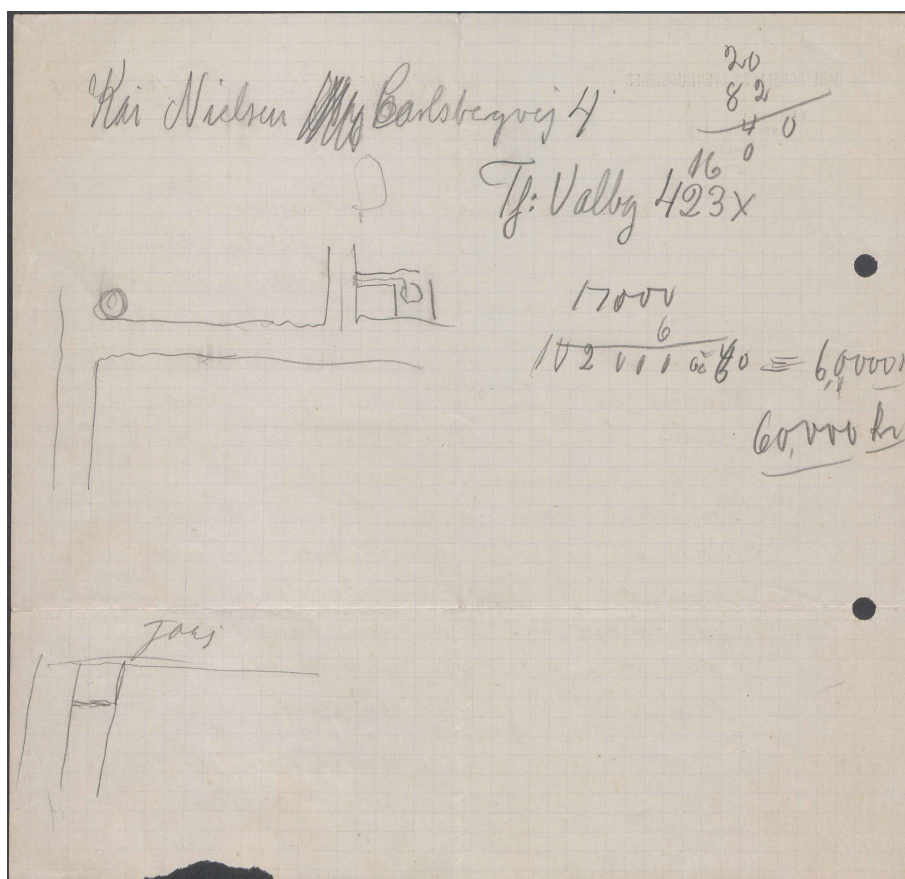 Kai Nielsen Carlsbergvej 4
20
82
40
0
Tf: Valby 423x
16
17000
6
102000 à 60 = 60,000
60,000 kr